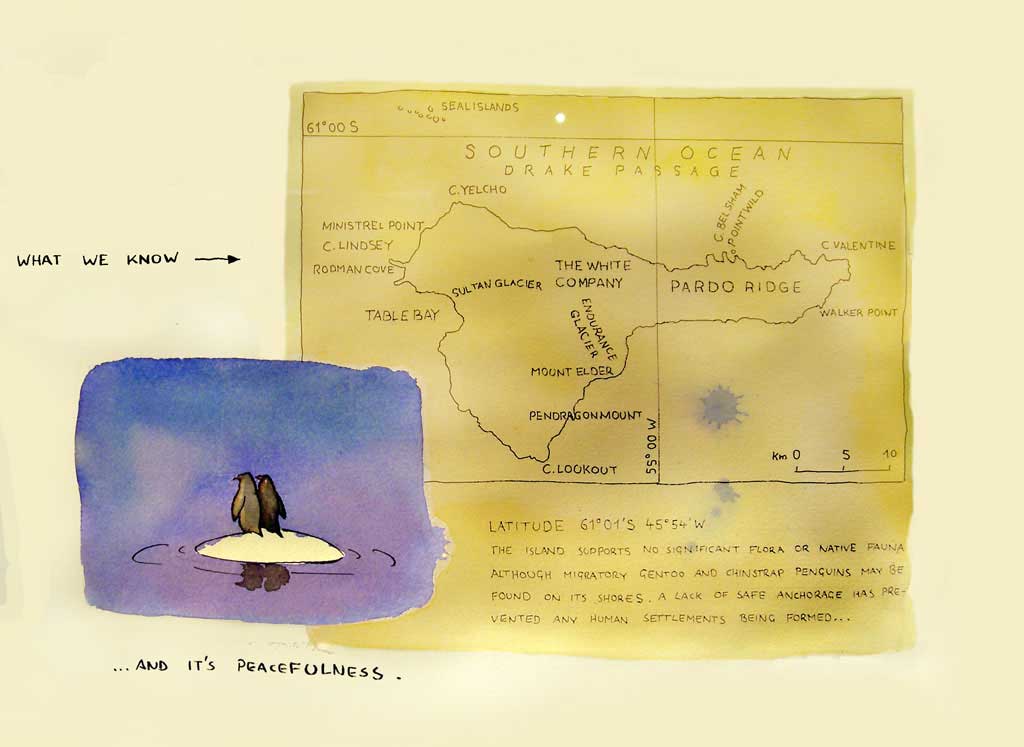 SEAL ISLANDS
61°00 S
SOUTHERN OCEAN
DRAKE PASSAGE
C. YELCHO
C. BELSHAM
POINT WILD
MINISTREL POINT
C. LINDSEY
C. VALENTINE
WHAT WE KNOW
RODMAN COVE
THE WHITE
COMPANY
SULTAN GLACIER
PARDO RIDGE
TABLE BAY
ENDURANCE
GLACIER
WALKER POINT
MOUNT ELDER
PENDRAGON MOUNT
55° 00 W
C. LOOKOUT
Km 0 5 10
LATITUDE 61°01'S 45°54'W
THE ISLAND SUPPORTS NO SIGNIFICANT FLORA OR NATIVE FAUNA
ALTHOUGH MIGRATORY GENTOO AND CHINSTRAP PENGUINS MAY BE
FOUND ON ITS SHORES. A LACK OF SAFE ANCHORAGE HAS PRE-
VENTED ANY HUMAN SETTLEMENTS BEING FORMED...
...AND IT'S PEACEFULNESS.